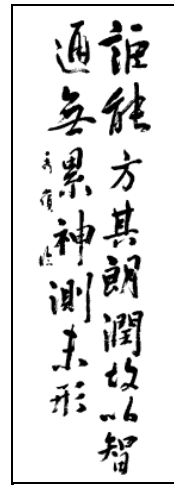 詎能方其朗潤故以智
通無累神測未形
秀嶺臨